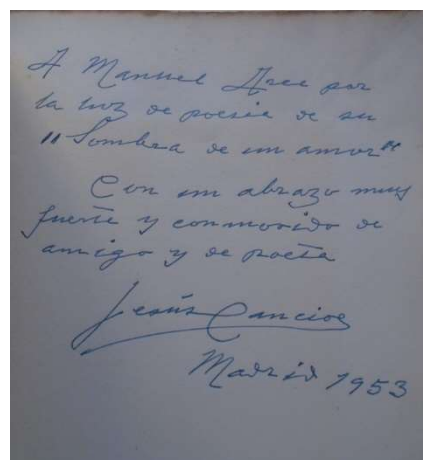 A Manuel Arce por
la luz de poesia de su
"Sombra de un amor"
Con un abrazo muy
fuerte y conmovido de
amigo y de poeta
Jesús Cancio
Madrid 1953